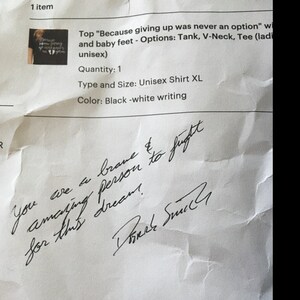 1 item
Top "Because giving up was never an option" wi
and baby feet - Options: Tank, V-Neck, Tee (ladi
unisex)
Quantity: 1
Type and Size: Unisex Shirt XL
Color: Black -white writing
R
You are a brave &
amazing person to fight
for this dream.
Smith